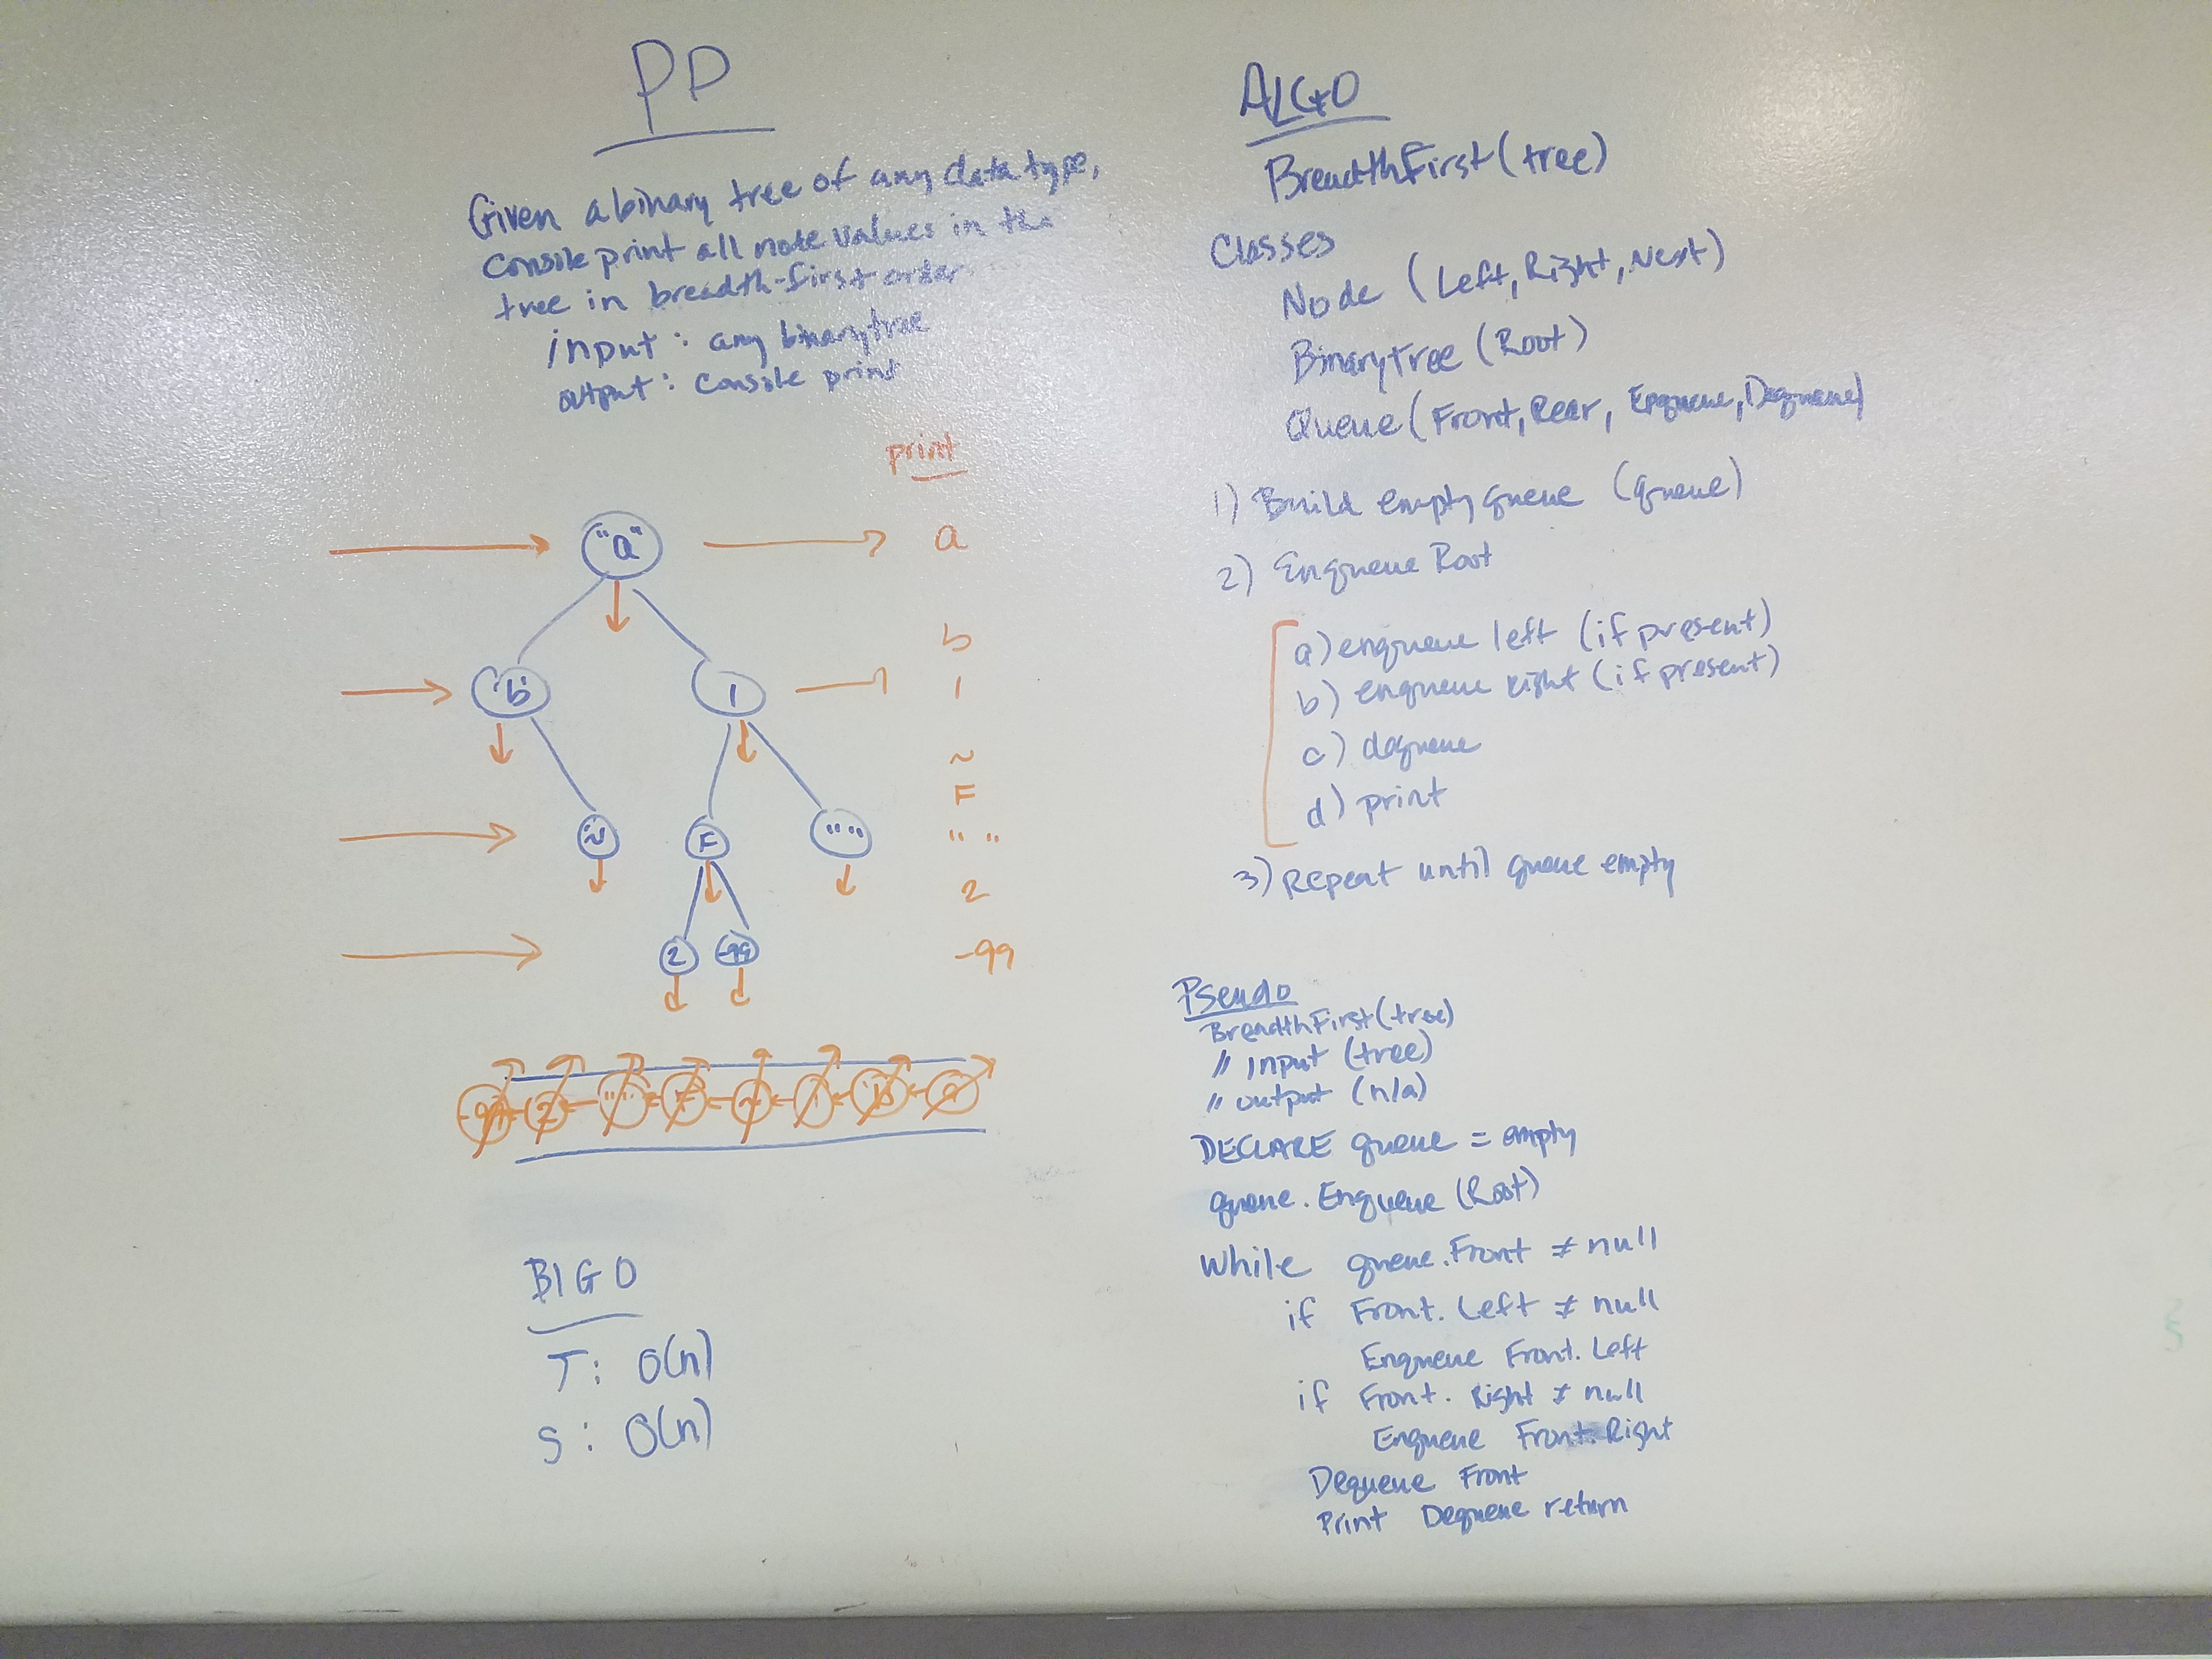 PD
Given a binary tree of any data type,
console print all node values in the
tree in breadth-first order
input : any binary tree
output : console print
print
"a"
a
b
"b"
1
1
~
F
" "
~
F
" "
2
2
-99
-99
-99
2
" "
F
~
1
b
a
BIG O
T : O(n)
S : O(n)
ALGO
BreadthFirst(tree)
Classes
Node (Left, Right, Next)
BinaryTree (Root)
Queue (Front, Rear, Enqueue, Dequeue)
1) Build empty queue (queue)
2) Enqueue Root
a) enqueue left (if present)
b) enqueue right (if present)
c) dequeue
d) print
3) Repeat until queue empty
Pseudo
BreadthFirst(tree)
// Input (tree)
// output (n/a)
DECLARE queue = empty
queue.Enqueue (Root)
While queue.Front ≠ null
if Front. Left ≠ null
Enqueue Front. Left
if Front. Right ≠ null
Enqueue Front. Right
Dequeue Front
Print Dequeue return